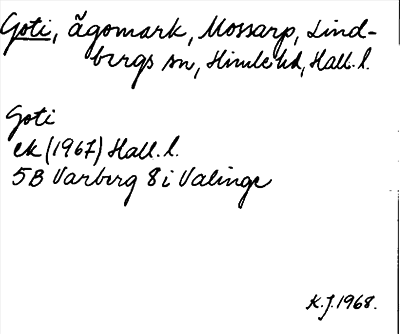 Goti, ägomark, Mossarp, Lind-
bergs sn, Himle hd, Hall. l.
Goti
ek (1967) Hall. l.
5B Varberg 8 i Valinge
K.J. 1968.